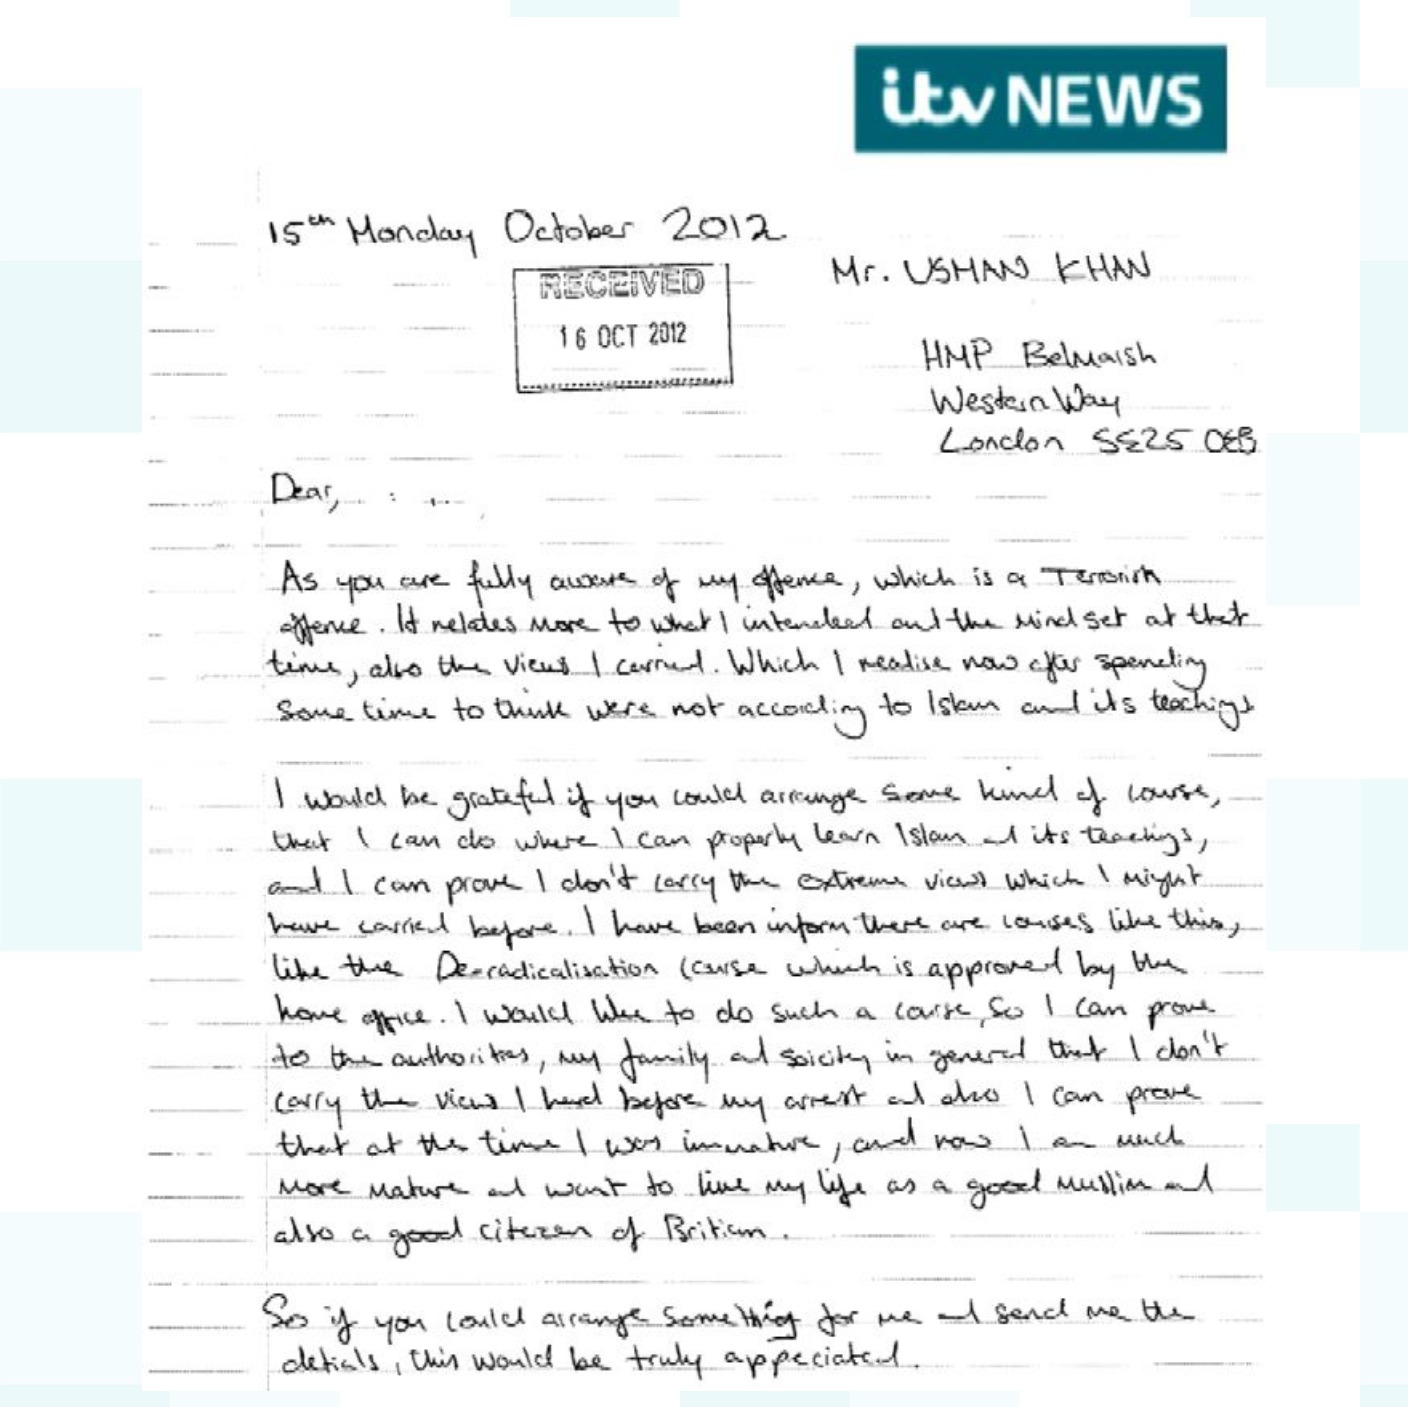 itv NEWS
15th Monday October 2012
Mr. USMAN KHAN
RECEIVED
16 OCT 2012
HMP Belmarsh
Western Way
London SE25 0EB
Dear,
As you are fully aware of my offence, which is a Terrorish
offence. It relates more to what I intended and the mind set at that
time, also the views I carried. Which I realise now after spending
some time to think were not according to Islam and its teachings
I would be grateful if you could arrange some kind of course,
that I can do where I can properly learn Islam and its teachings,
and I can prove I don't carry the extreme views which I might
have carried before. I have been inform there are courses like this,
like the De-radicalisation course which is approved by the
home office. I would like to do such a course, so I can prove
to the authorities, my family and soicity in general that I don't
carry the views I had before my arrest and also I can prove
that at the time I was immature, and now I am much
more mature and want to live my life as a good muslim and
also a good citezen of Britian.
So if you could arrange something for me and send me the
detials, this would be truly appeciated.